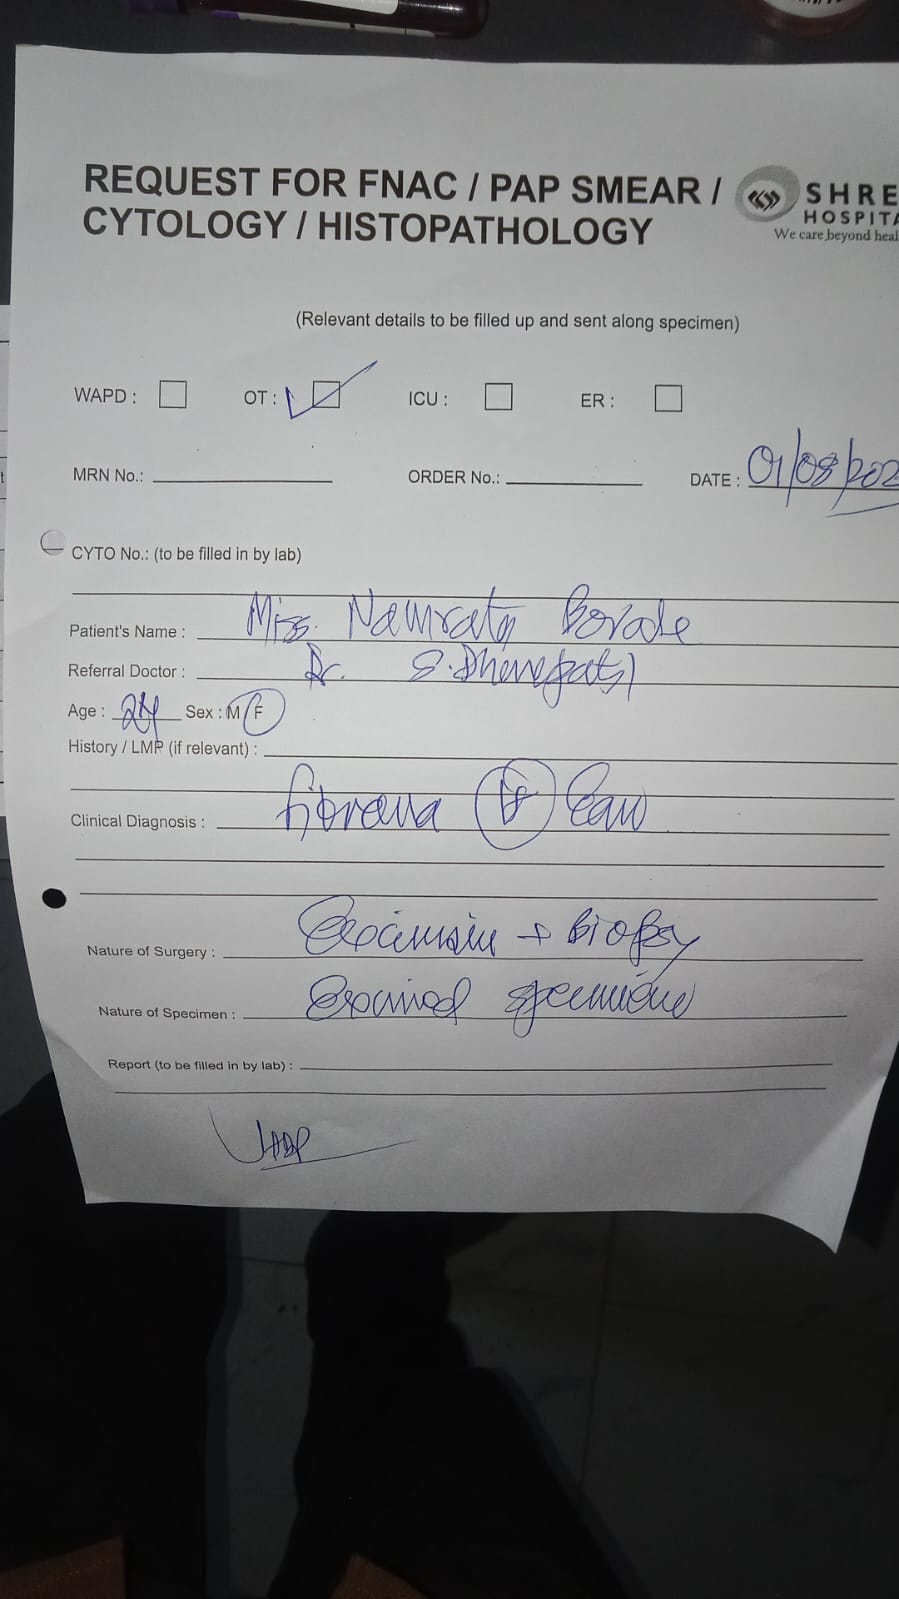 REQUEST FOR FNAC / PAP SMEAR /
CYTOLOGY / HISTOPATHOLOGY
SHRE
HOSPITA
We care beyond heal
(Relevant details to be filled up and sent along specimen)
WAPD : OT : ICU : ER :
MRN No.: ORDER No.: DATE : 01/08/202
CYTO No.: (to be filled in by lab)
Patient's Name : Miss. Namrata Borade
Referral Doctor : Dr. S.
Age : Sex : M F
History / LMP (if relevant) :
Clinical Diagnosis :
Nature of Surgery : Excision + biopsy
Nature of Specimen : Excised specimen
Report (to be filled in by lab) :